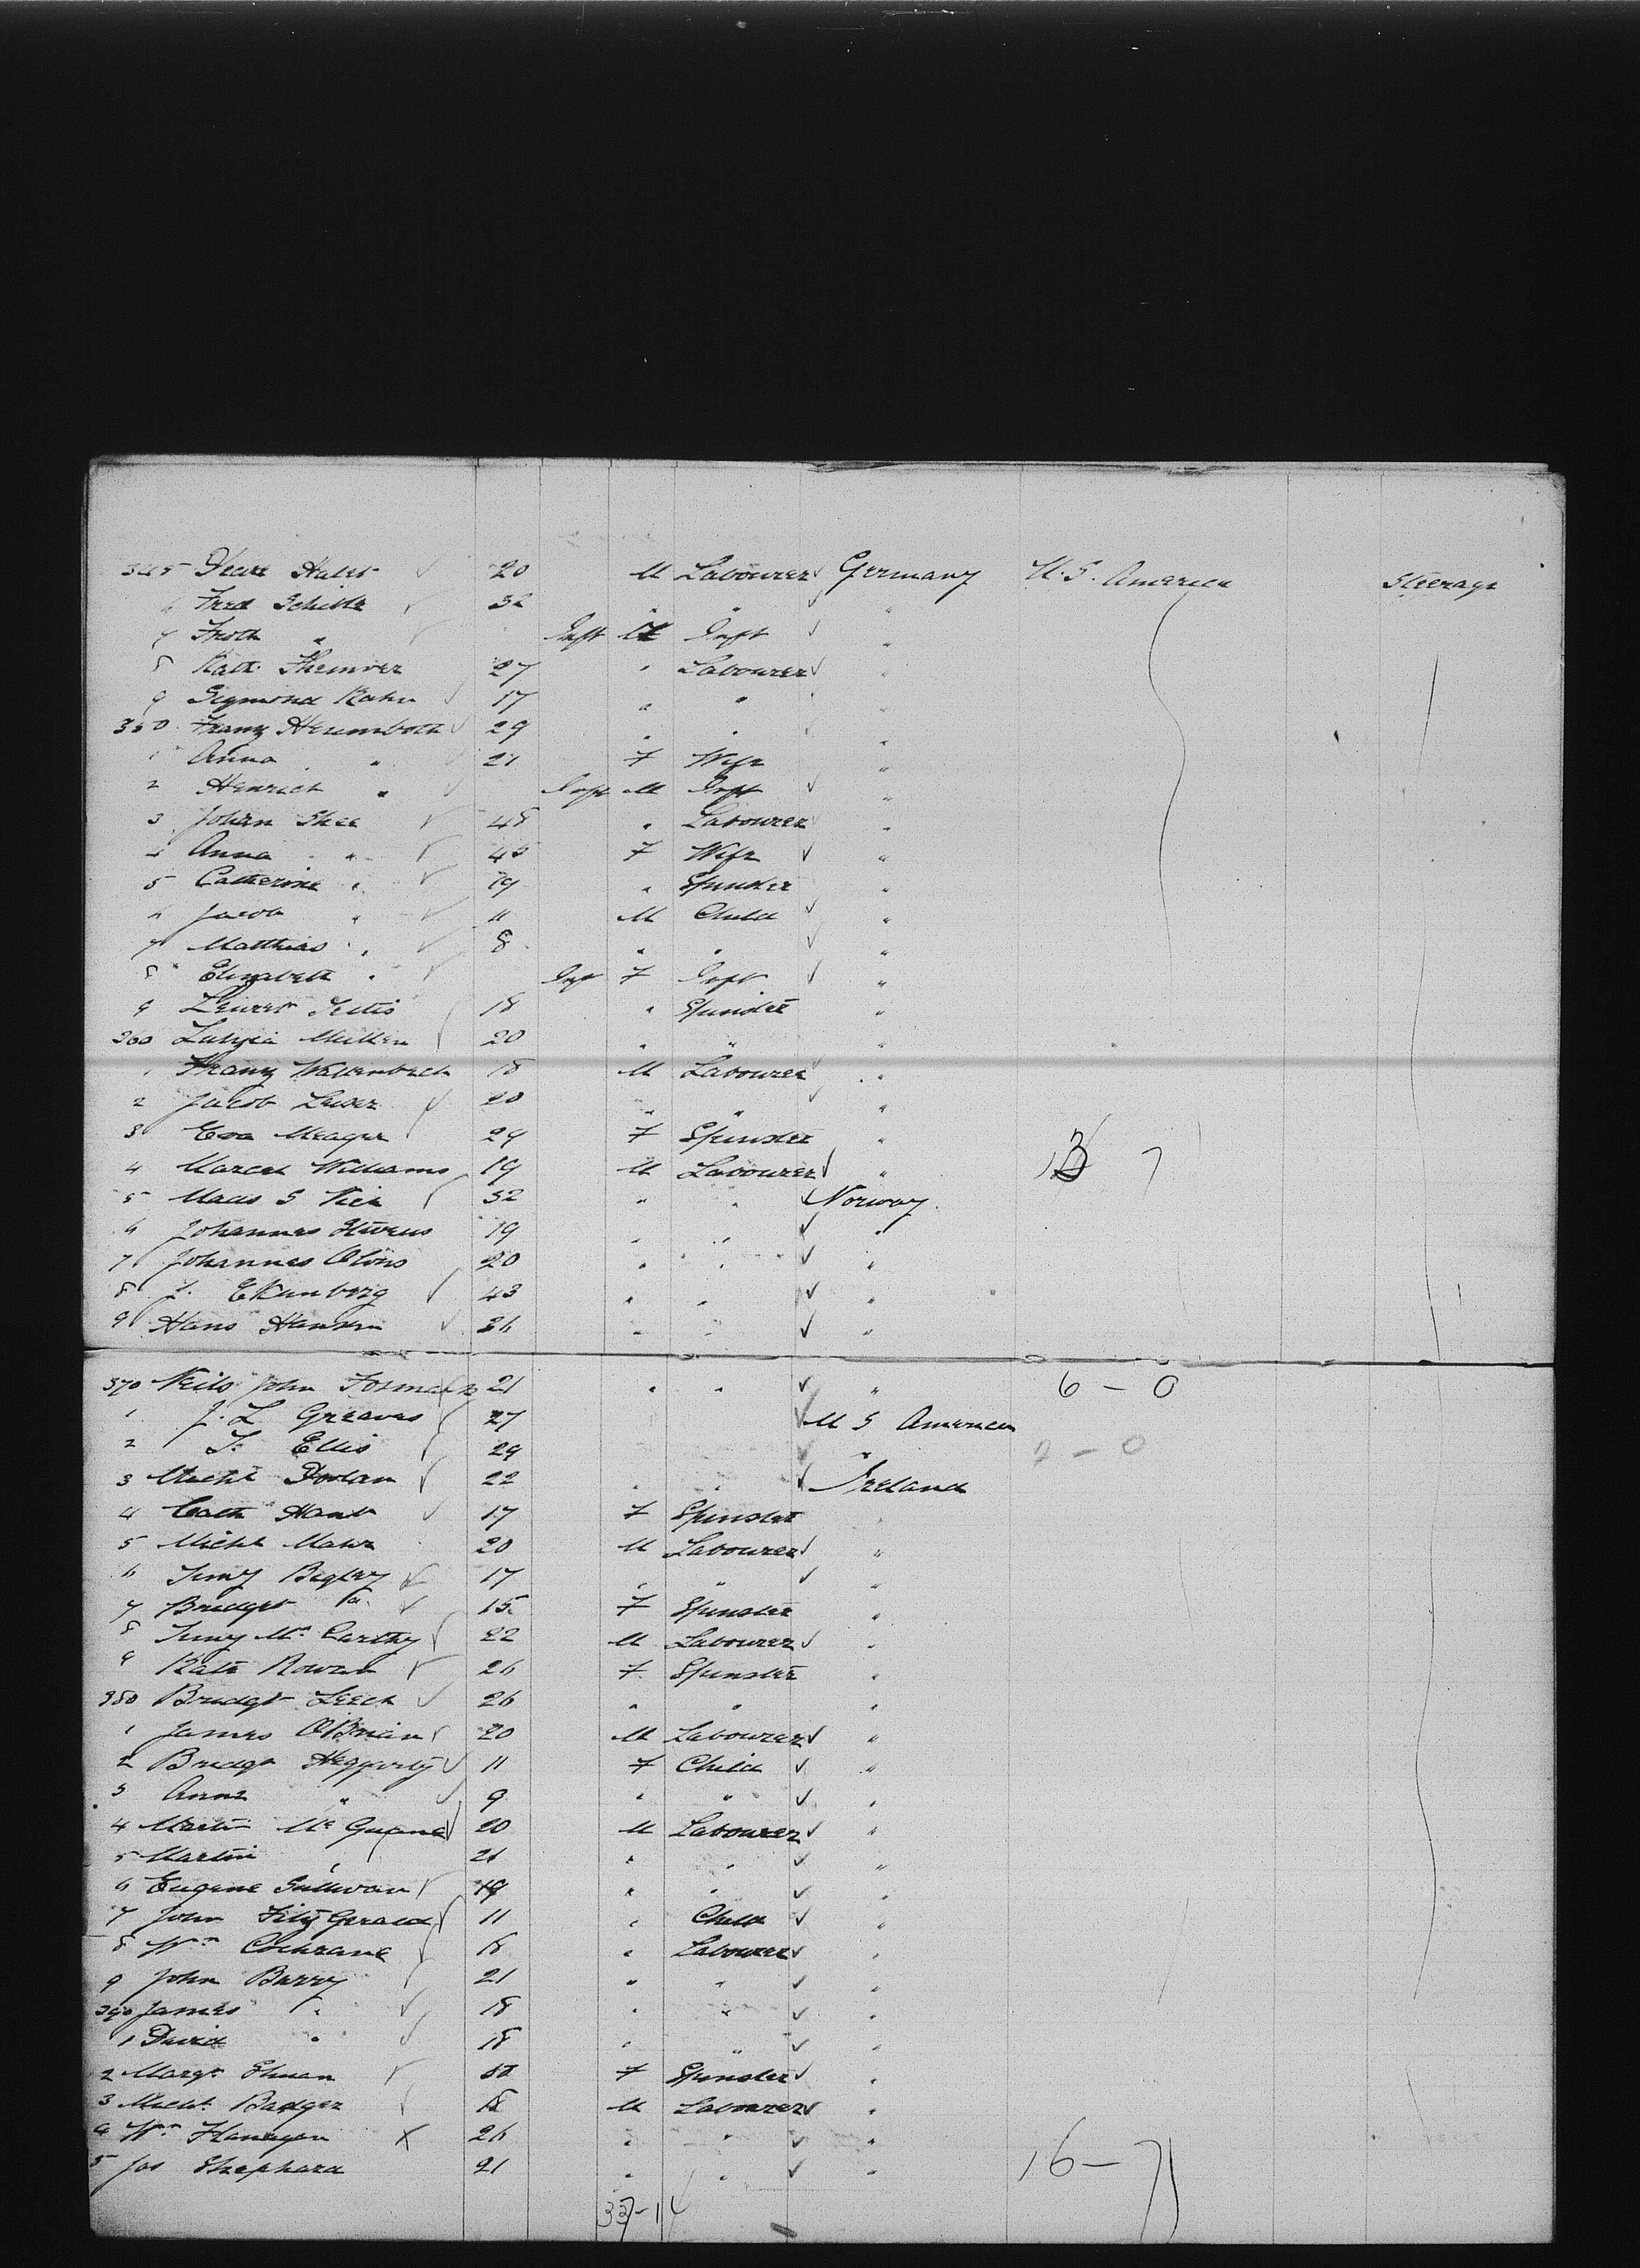 345 Hales 20 M Labourer Germany U.S. America Steerage
6 Fred Schiltz 32 " " "
7 " Inft M Inft "
8 Kath. 27 " Labourer "
9 Sigmond Kahn 17 " " "
350 Franz Heumboth 29 " " "
1 Anna " 21 F Wife "
2 Henrich " Inft M Inft "
3 Johan Shee 48 " Labourer "
4 Anna " 45 F Wife "
5 Catherine " 19 " Spinster "
6 Jacob " 11 M Child "
7 Matthias " 8 " " "
8 Elizabeth " Inft F Inft "
9 18 " Spinster "
360 Miller 20 " " "
1 Franz Wallenbach 18 M Labourer "
2 Jacob Leiser 20 " " "
3 Eva Meager 29 F Spinster " 13 7
4 Marcel Williams 19 M Labourer "
5 Mads S 32 " " Norway.
6 Johannes 19 " " "
7 Johannes Olons 20 " " "
8 J. Ekunborg 43 " " "
9 Hans Hansen 26 " " "
370 Neils John 21 " " " 6 - 0
1 J. L Greaves 27 U S America
2 T. Ellis 29 " 2 - 0
3 Michl Dolan 22 " " Ireland
4 Cath Hant 17 F Spinster "
5 Michl Maher 20 M Labourer "
6 Timy Begley 17 " " "
7 Bridget Do. 15 F Spinster "
8 Timy Mc Carthy 22 M Labourer "
9 Kate 26 F Spinster "
380 Bridgt Leech 26 " " "
1 James O'Brian 20 M Labourer "
2 Bridgt Hegperty 11 F Child "
3 Anne " 9 " " "
4 Martin Mc Guane 20 M Labourer "
5 Martin " 21 " " "
6 Eugene Sullivan 19 " " "
7 John FitzGerald 11 " Child "
8 Wm Cochrane 18 " Labourer "
9 John Barry 21 " " "
390 James " 18 " " "
1 David " 18 " " "
2 Margt F Spinster "
3 Michl. Badger 18 M Labourer "
4 Wm Flanagan X 26 " " "
5 Jas Shephard 21 " " " 16 - 7
33-14